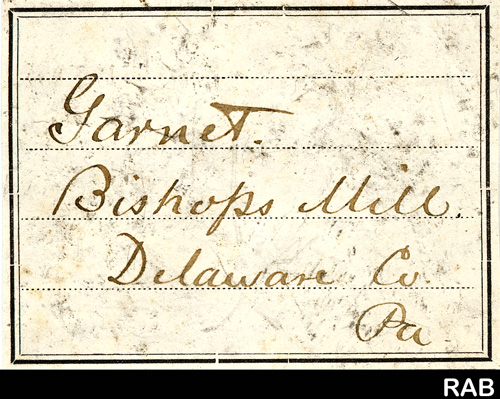 Garnet.
Bishops Mill.
Delaware Co.
Pa
RAB